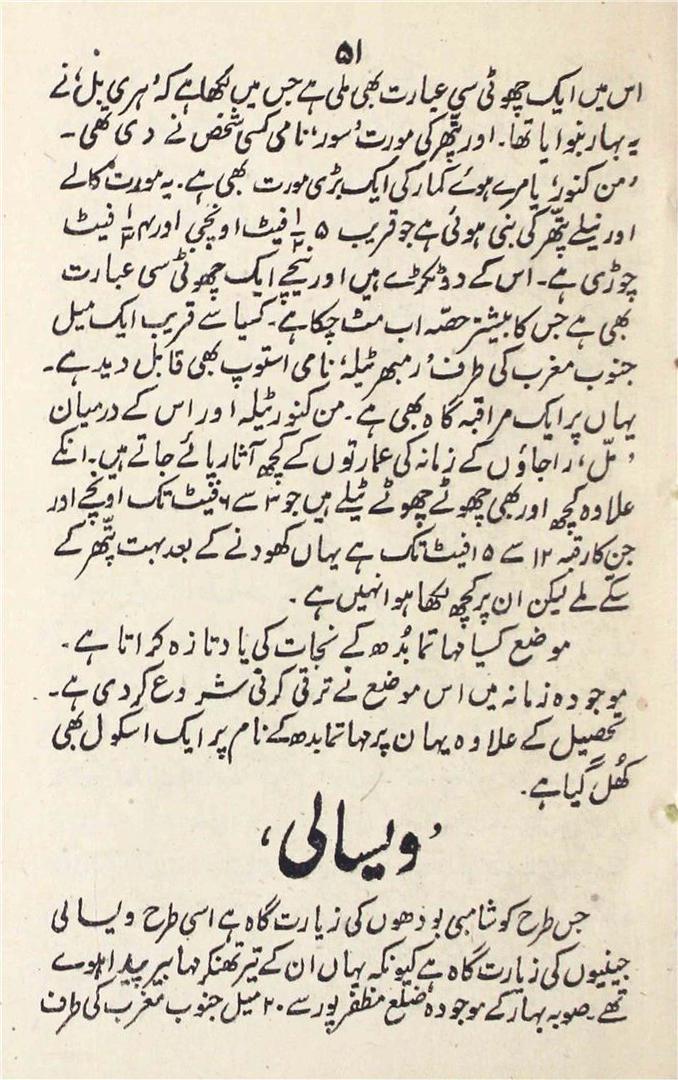 ۵۱
اس میں ایک چھوٹی سی عبارت بھی ملی ہے جس میں لکھا ہے کہ ’ہری بل‘ نے
یہ بہار بنوایا تھا۔ اور پتّھر کی مورت ’سور‘ نامی کسی شخص نے دی تھی۔
’من کنور‘ یا مرے ہوئے کمار کی ایک بڑی مورت بھی ہے۔ یہ مورت کالے
اور نیلے پتّھر کی بنی ہوئی ہے جو قریب ۵ ۱/۲ فیٹ اونچی اور ۴ ۱/۲ فیٹ
چوڑی ہے۔ اس کے دو ٹکڑے ہیں اور نیچے ایک چھوٹی سی عبارت
بھی ہے جس کا بیشتر حصّہ اب مٹ چکا ہے۔ کسیا سے قریب ایک میل
جنوب مغرب کی طرف ’رمبھر ٹیلہ‘ نامی استوپ بھی قابل دید ہے۔
یہاں پر ایک مراقبہ گاہ بھی ہے۔ من کنور ٹیلہ اور اس کے درمیان
’ملّ‘ راجاؤں کے زمانہ کی عمارتوں کے کچھ آثار پائے جاتے ہیں۔ انکے
علاوہ کچھ اور بھی چھوٹے چھوٹے ٹیلے ہیں جو ۳ سے ۶ فیٹ تک اونچے اور
جن کا رقبہ ۱۲ سے ۱۵ فیٹ تک ہے یہاں کھودنے کے بعد بہت پتّھر کے
سکے ملے لیکن ان پر کچھ لکھا ہوا نہیں ہے۔
موضع کسیا مہاتما بُدھ کے نجات کی یاد تازہ کراتا ہے۔
موجودہ زمانہ میں اس موضع نے ترقی کرنی شروع کر دی ہے۔
تحصیل کے علاوہ یہاں پر مہاتما بدھ کے نام پر ایک اسکول بھی
کُھل گیا ہے۔
’ویسالی‘
جس طرح کوشامبی بودھوں کی زیارت گاہ ہے اسی طرح ویسالی
جینیوں کی زیارت گاہ ہے کیونکہ یہاں ان کے تیرتھنکر مہابیر پیدا ہوے
تھے۔ صوبہ بہار کے موجودہ ضلع مظفرپور سے ۲۰ میل جنوب مغرب کی طرف